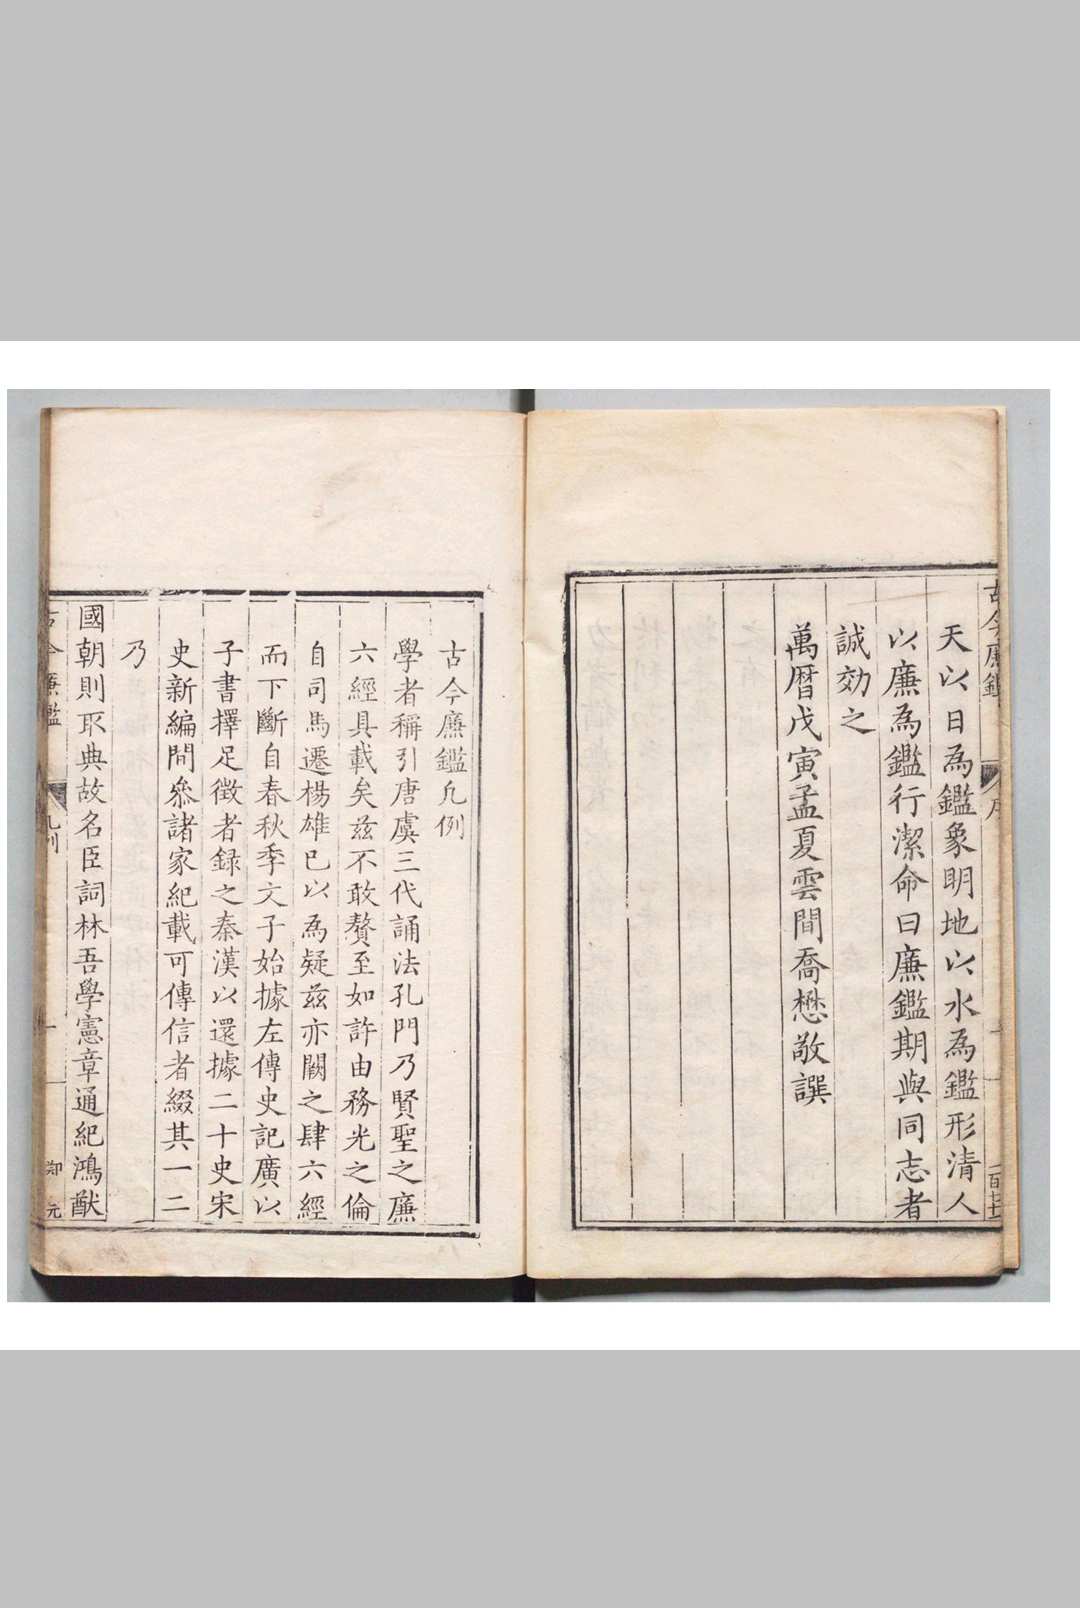 天以日為鑑象明地以水為鑑形清人
以廉為鑑行潔命曰廉鑑期與同志者
誠効之
萬曆戊寅孟夏雲間喬懋敬譔
古今廉鑑凡例
學者稱引唐虞三代誦法孔門乃賢聖之廉
六經具載矣茲不敢贅至如許由務光之倫
自司馬遷楊雄已以為疑茲亦闕之肆六經
而下斷自春秋季文子始據左傳史記廣以
子書擇足徵者録之秦漢以還據二十史宋
史新編間叅諸家紀載可傳信者綴其一二
乃
國朝則取典故名臣詞林吾學憲章通紀鴻猷